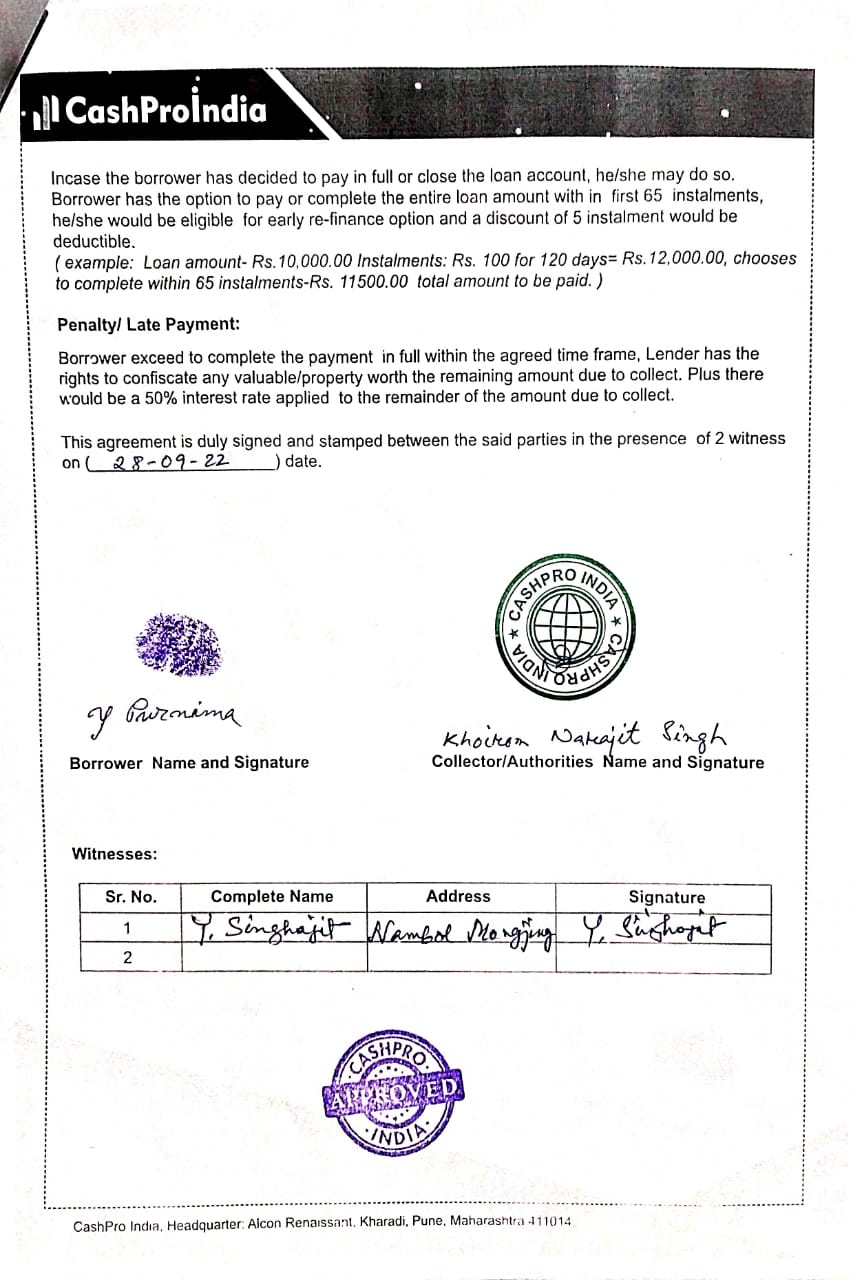 CashProIndia
Incase the borrower has decided to pay in full or close the loan account, he/she may do so.
Borrower has the option to pay or complete the entire loan amount with in first 65 instalments,
he/she would be eligible for early re-finance option and a discount of 5 instalment would be
deductible.
( example: Loan amount- Rs.10,000.00 Instalments: Rs. 100 for 120 days= Rs.12,000.00, chooses
to complete within 65 instalments-Rs. 11500.00 total amount to be paid. )
Penalty/ Late Payment:
Borrower exceed to complete the payment in full within the agreed time frame, Lender has the
rights to confiscate any valuable/property worth the remaining amount due to collect. Plus there
would be a 50% interest rate applied to the remainder of the amount due to collect.
This agreement is duly signed and stamped between the said parties in the presence of 2 witness
on ( 28-09-22 ) date.
★ CASHPRO INDIA ★ CASHPRO INDIA
Y Purnima
Khoirom Narajit Singh
Borrower Name and Signature
Collector/Authorities Name and Signature
Witnesses:
Sr. No. Complete Name Address Signature
1 Y. Singhajit Nambol Mongjing Y. Singhajit
2
CASHPRO
APPROVED
INDIA
CashPro India, Headquarter: Alcon Renaissant, Kharadi, Pune, Maharashtra 411014